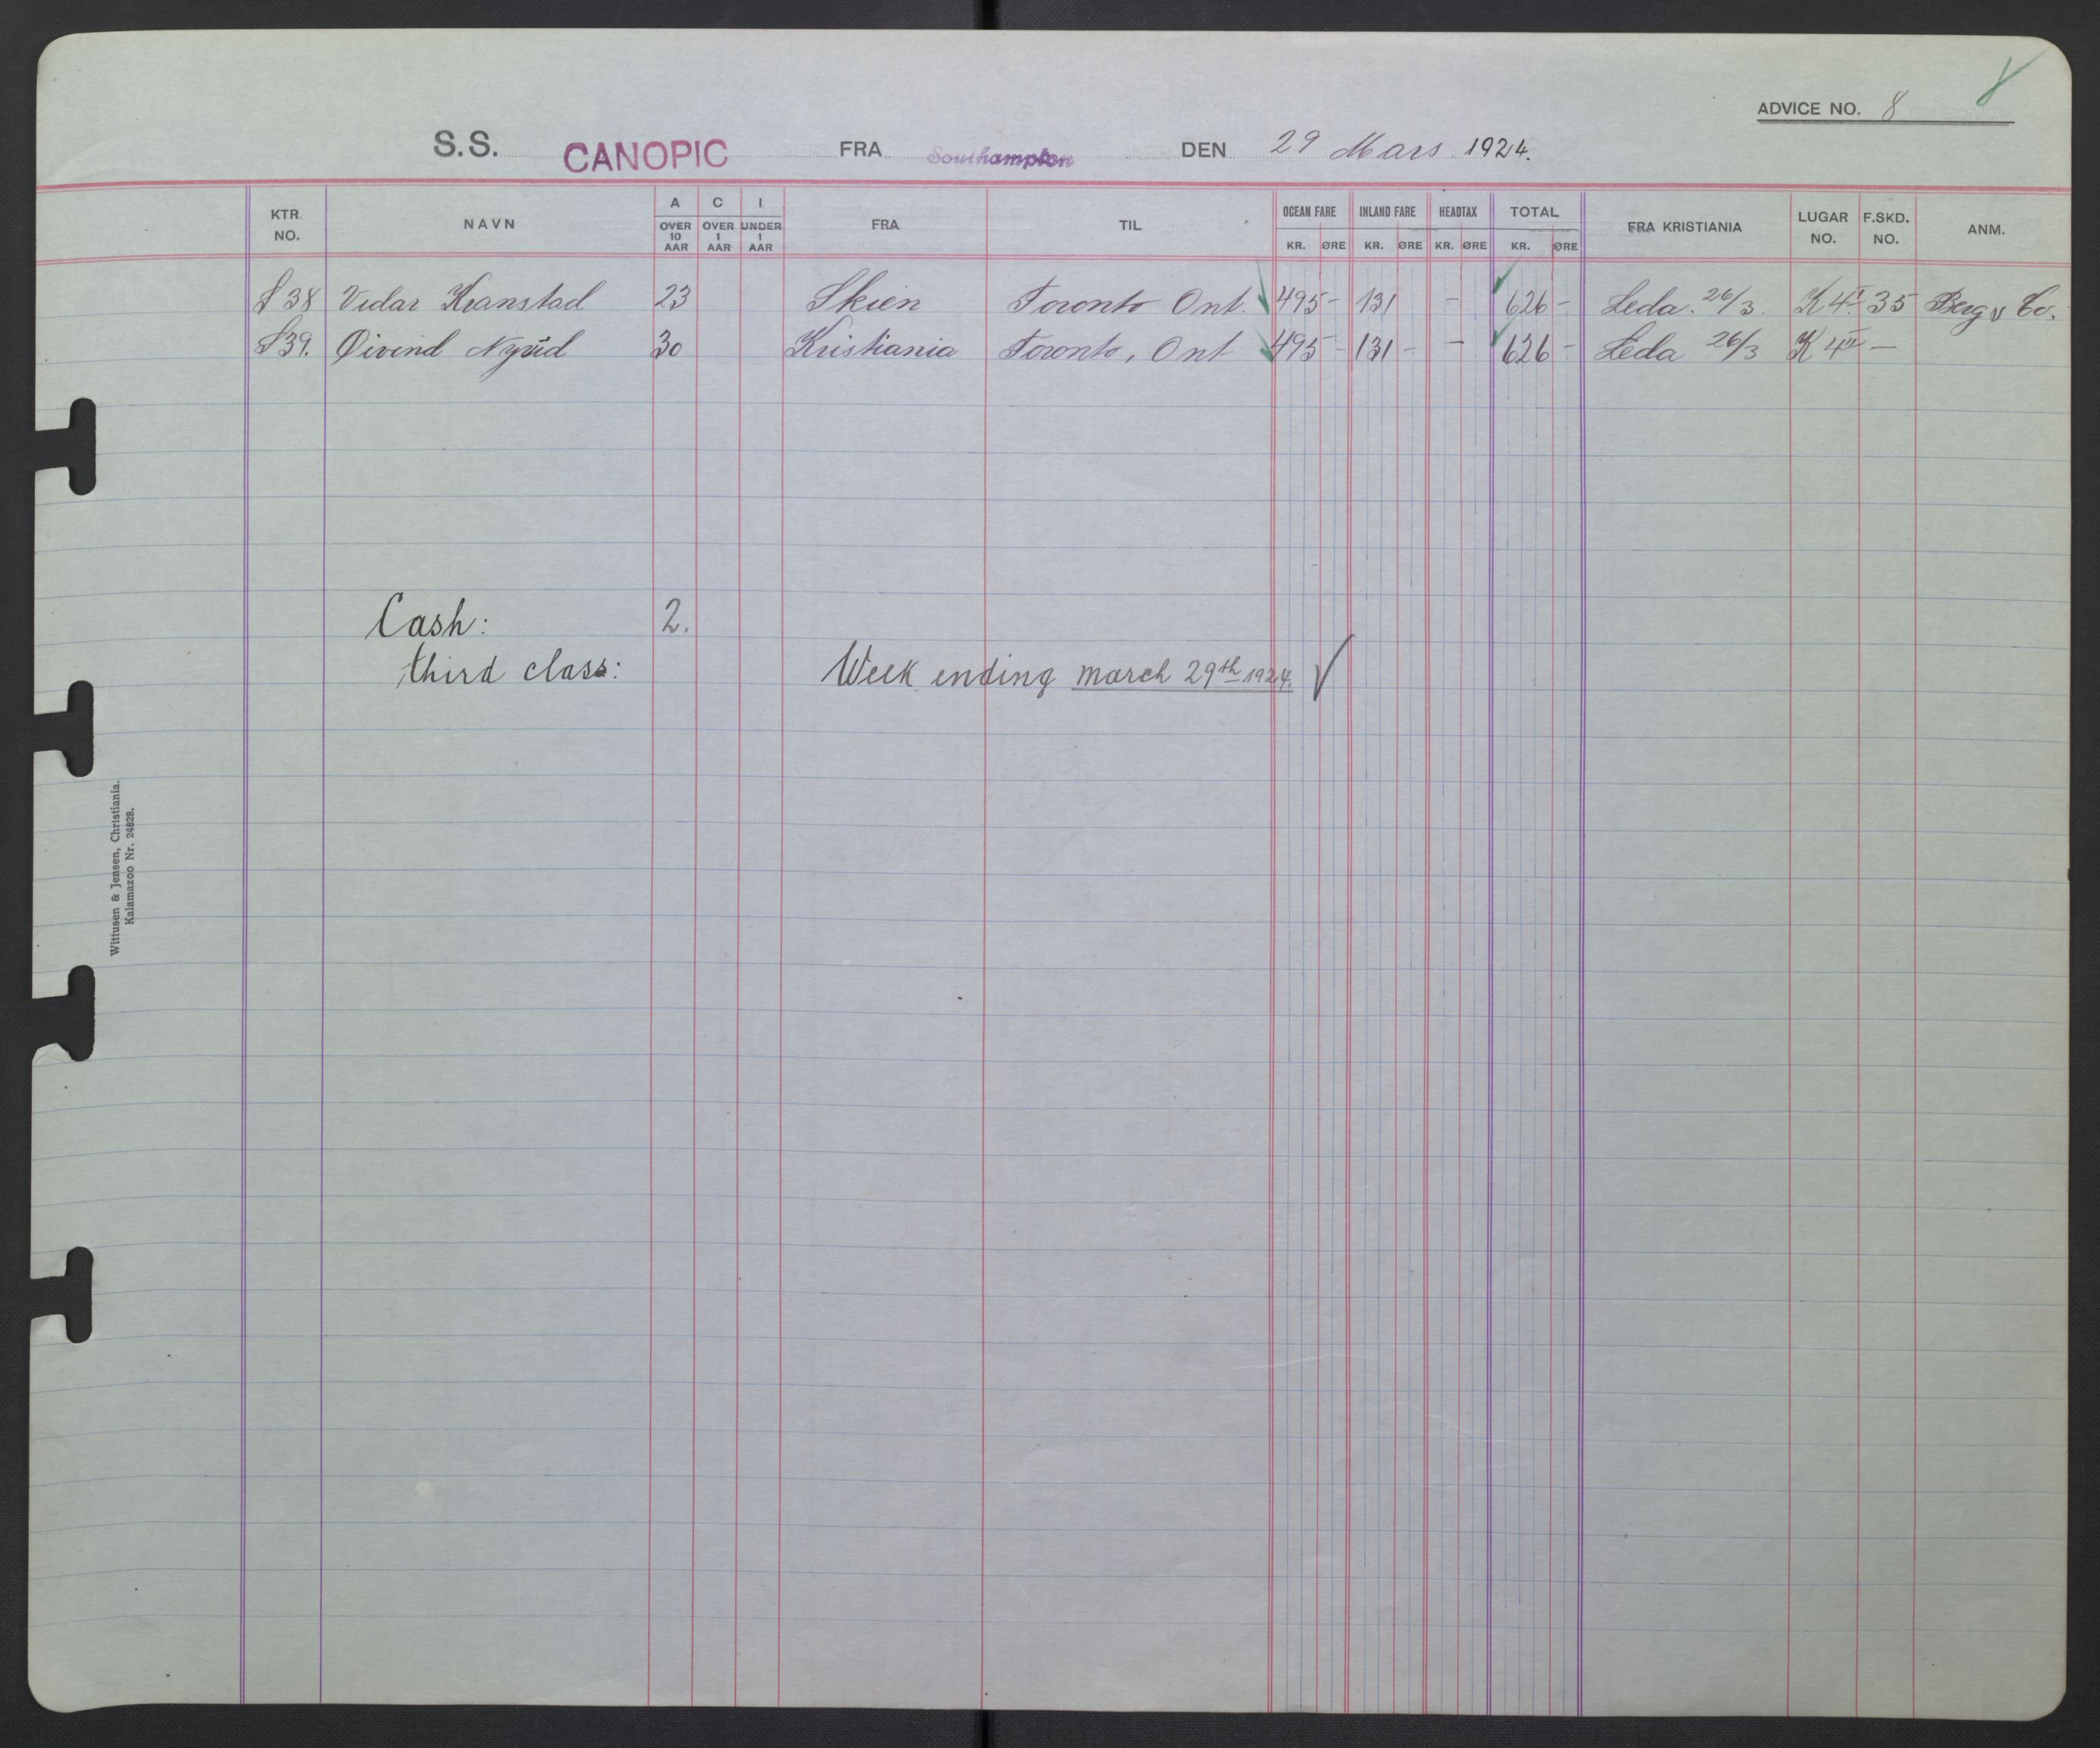 ADVICE NO. 8
S.S. CANOPIC FRA Southampton DEN 29 Mars 1924.
KTR. NO. NAVN A OVER 10 AAR C OVER 1 AAR I UNDER 1 AAR FRA TIL OCEAN FARE KR. ØRE INLAND FARE KR. ØRE HEADTAX KR. ØRE TOTAL KR. ØRE FRA KRISTIANIA LUGAR NO. F.SKD. NO. ANM.
38 Vidar Kranstad 23 Skien Toronto Ont. 495 - 131 - 626 - Leda. 26/3. K 4 I 35 Berg & Co.
39. Øivind 30 Kristiania Toronto, Ont 495 - 131 - - 626 - Leda 26/3 K 4 II -
Cash: 2.
third class: Week ending march 29th 1924. ✓
Wittusen & Jensen, Christiania.
Kalamazoo Nr. 24828.